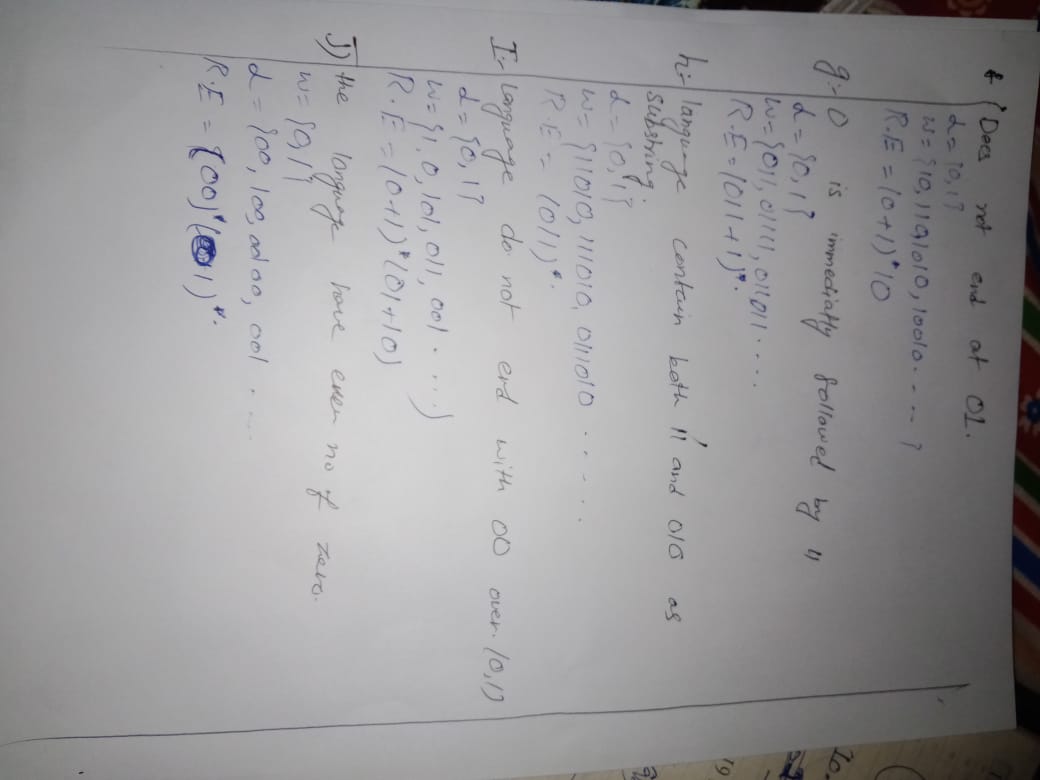 f Does not end at 01.
L = {0,1}
W = {10, 1101010, 10010.... }
R.E = (0+1)*10
g:- 0 is immediatly followed by 11
L = {0,1}
W = {011, 01111, 011011....
R.E = (011+1)*.
h:- language contain both 11 and 010 as
substring.
L = {0,1}
W = {11010, 111010, 0111010 ......
R.E = (011)*.
I:- language do not end with 00 over (0,1)
L = {0,1}
W = {1,0,101,011,001.....)
R.E = (0+1)*(01+10)
J) the language have even no of zero.
W = {0,1}
L = {00, 100, 00100, 001 ....
R.E = (00)*(1)*.